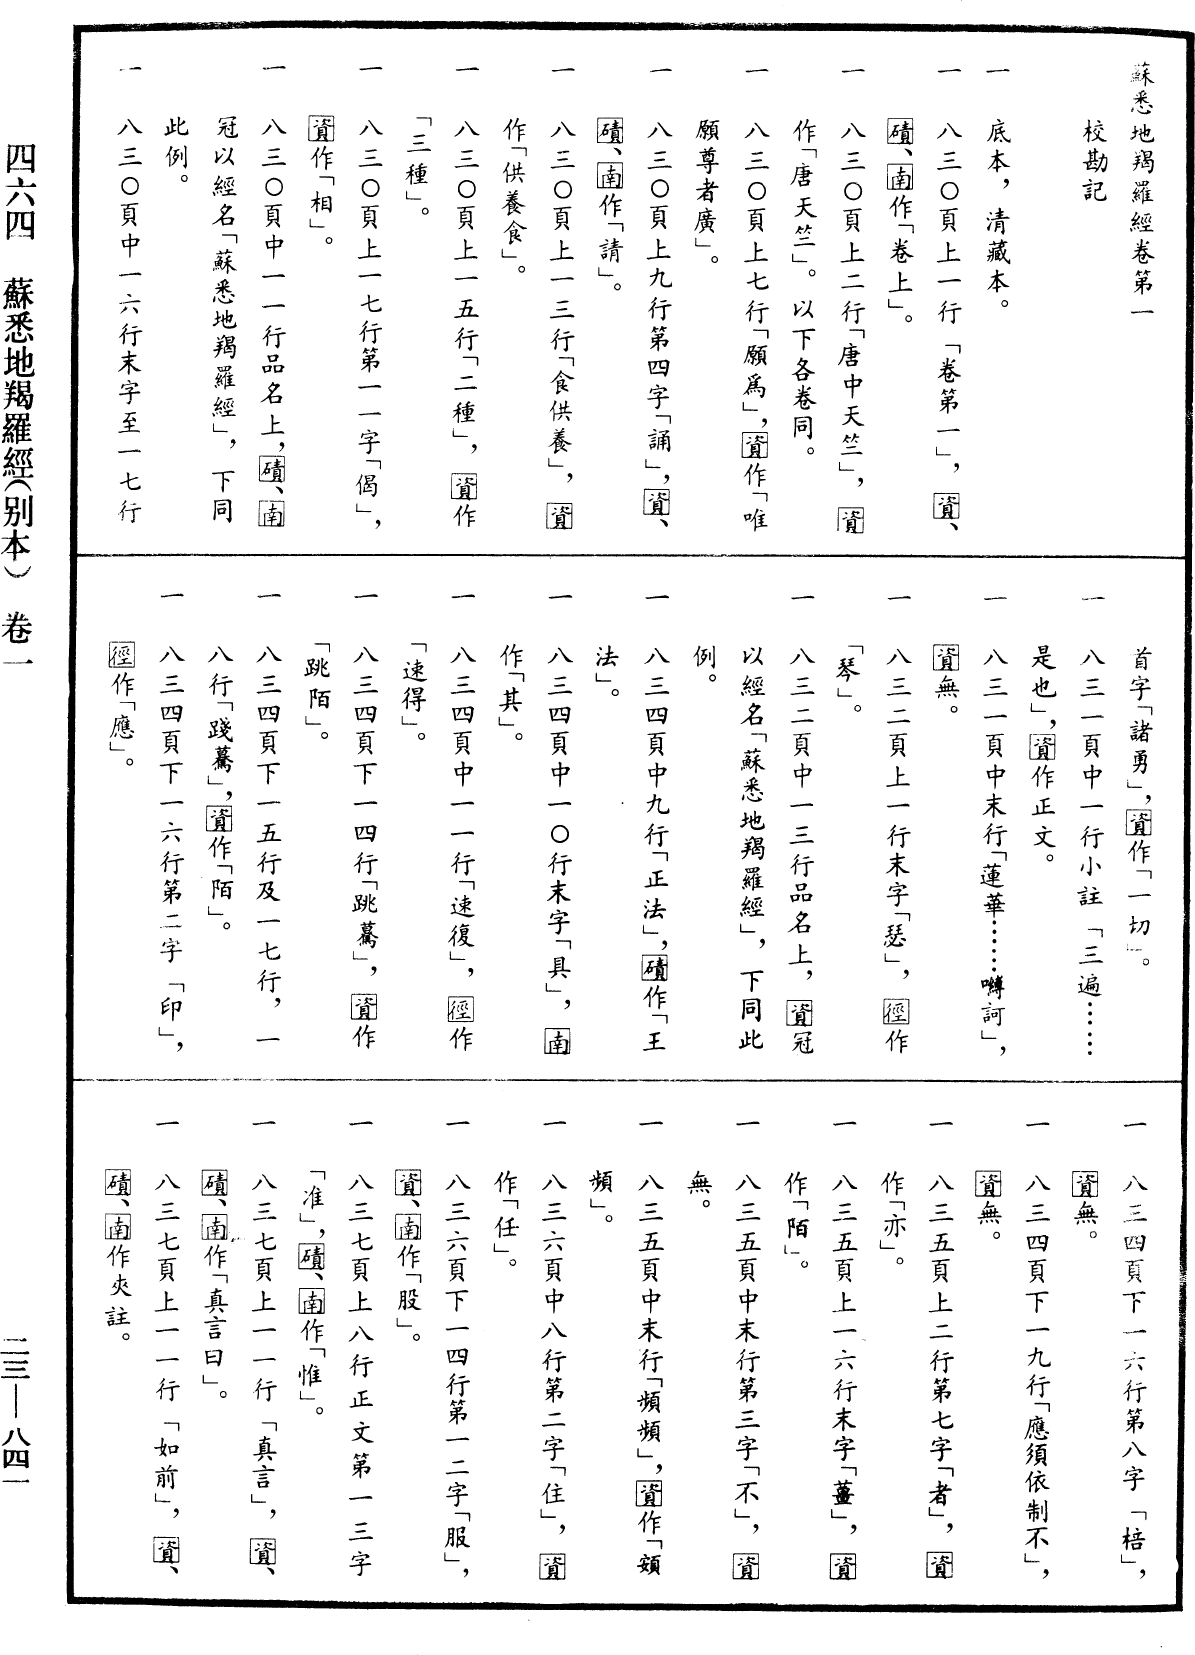 蘇悉地羯羅經卷第一
校勘記
一　底本，清藏本。
一　八三〇頁上一行「卷第一」，資、
磧、南作「卷上」。
一　八三〇頁上二行「唐中天竺」，資
作「唐天竺」。以下各卷同。
一　八三〇頁上七行「願爲」，資作「唯
願尊者廣」。
一　八三〇頁上九行第四字「誦」，資、
磧、南作「請」。
一　八三〇頁上一三行「食供養」，資
作「供養食」。
一　八三〇頁上一五行「二種」，資作
「三種」。
一　八三〇頁上一七行第一一字「偈」，
資作「相」。
一　八三〇頁中一一行品名上，磧、南
冠以經名「蘇悉地羯羅經」，下同
此例。
一　八三〇頁中一六行末字至一七行
首字「諸勇」，資作「一切」。
一　八三一頁中一行小註「三遍……
是也」，資作正文。
一　八三一頁中末行「蓮華……嚩訶」，
資無。
一　八三二頁上一行末字「瑟」，徑作
「琴」。
一　八三二頁中一三行品名上，資冠
以經名「蘇悉地羯羅經」，下同此
例。
一　八三四頁中九行「正法」，磧作「王
法」。
一　八三四頁中一〇行末字「具」，南
作「其」。
一　八三四頁中一一行「速復」，徑作
「速得」。
一　八三四頁下一四行「跳驀」，資作
「跳陌」。
一　八三四頁下一五行及一七行，一
八行「踐驀」，資作「陌」。
一　八三四頁下一六行第二字「印」，
徑作「應」。
一　八三四頁下一六行第八字「棓」，
資無。
一　八三四頁下一九行「應須依制不」，
資無。
一　八三五頁上二行第七字「者」，資
作「亦」。
一　八三五頁上一六行末字「薑」，資
作「陌」。
一　八三五頁中末行第三字「不」，資
無。
一　八三五頁中末行「頻頻」，資作「頞
頻」。
一　八三六頁中八行第二字「住」，資
作「任」。
一　八三六頁下一四行第一二字「服」，
資、南作「股」。
一　八三七頁上八行正文第一三字
「准」，磧、南作「惟」。
一　八三七頁上一一行「真言」，資、
磧、南作「真言曰」。
一　八三七頁上一一行「如前」，資、
磧、南作夾註。
四六四　蘇悉地羯羅經（別本）　卷一
二三—八四一